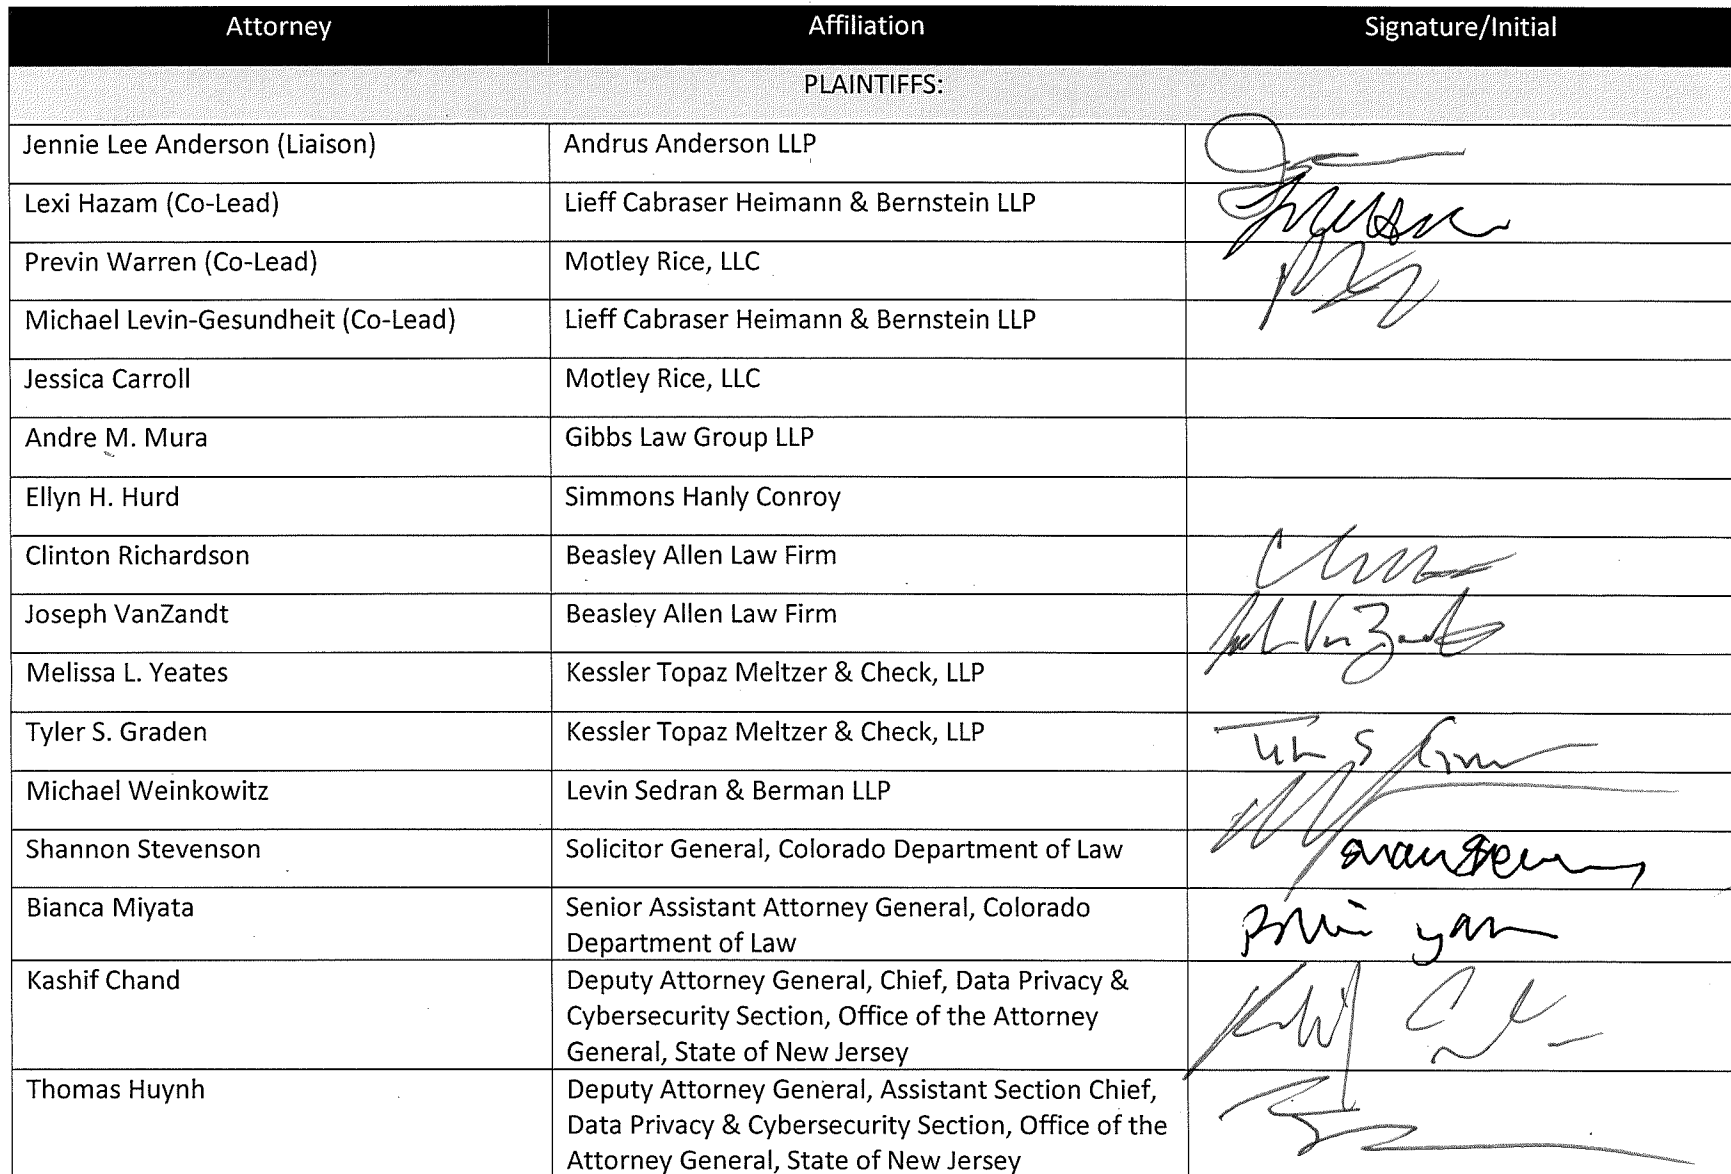 Attorney Affiliation Signature/Initial
PLAINTIFFS:
Jennie Lee Anderson (Liaison) Andrus Anderson LLP
Lexi Hazam (Co-Lead) Lieff Cabraser Heimann & Bernstein LLP
Previn Warren (Co-Lead) Motley Rice, LLC
Michael Levin-Gesundheit (Co-Lead) Lieff Cabraser Heimann & Bernstein LLP
Jessica Carroll Motley Rice, LLC
Andre M. Mura Gibbs Law Group LLP
Ellyn H. Hurd Simmons Hanly Conroy
Clinton Richardson Beasley Allen Law Firm
Joseph VanZandt Beasley Allen Law Firm
Melissa L. Yeates Kessler Topaz Meltzer & Check, LLP
Tyler S. Graden Kessler Topaz Meltzer & Check, LLP
Michael Weinkowitz Levin Sedran & Berman LLP
Shannon Stevenson Solicitor General, Colorado Department of Law
Bianca Miyata Senior Assistant Attorney General, Colorado
Department of Law
Kashif Chand Deputy Attorney General, Chief, Data Privacy &
Cybersecurity Section, Office of the Attorney
General, State of New Jersey
Thomas Huynh Deputy Attorney General, Assistant Section Chief,
Data Privacy & Cybersecurity Section, Office of the
Attorney General, State of New Jersey